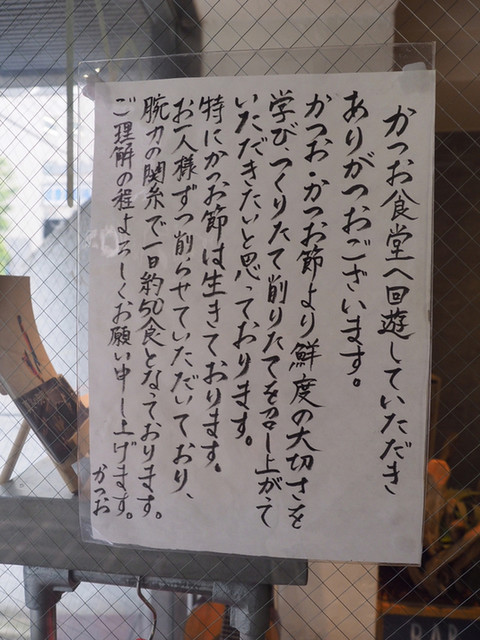 かつお食堂へ回遊していただき
ありがつおございます。
かつお・かつお節より鮮度の大切さを
学び、つくりたて削りたてを召し上がて
いただきたいと思っております。
特にかつお節は生きております。
お一人様ずつ削らせていただいており、
腕力の関糸で一日約50食となっております。
ご理解の程よろしくお願い申し上げます。
かつお
BAR